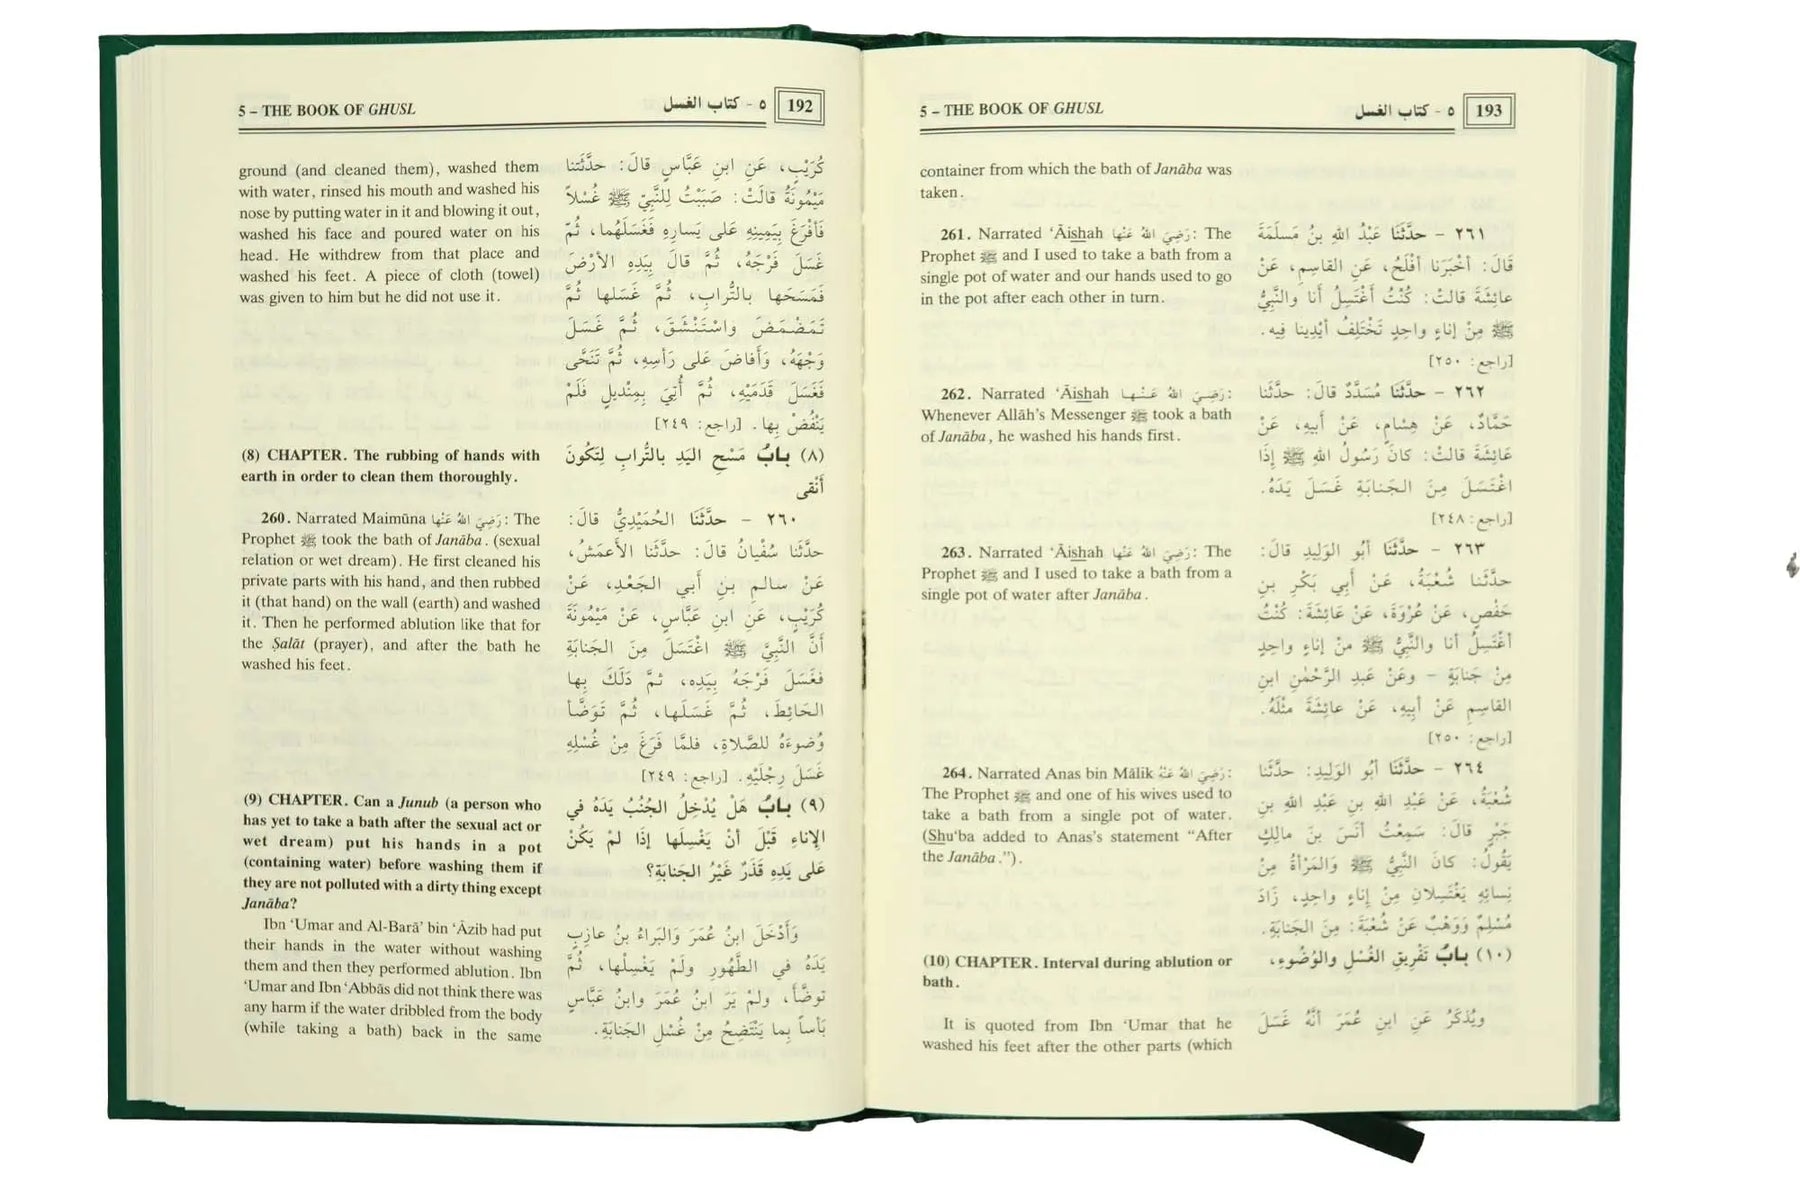 5 – THE BOOK OF GHUSL
٥ - كتاب الغسل
192
ground (and cleaned them), washed them
with water, rinsed his mouth and washed his
nose by putting water in it and blowing it out,
washed his face and poured water on his
head. He withdrew from that place and
washed his feet. A piece of cloth (towel)
was given to him but he did not use it.
(8) CHAPTER. The rubbing of hands with
earth in order to clean them thoroughly.
260. Narrated Maimūna رَضِيَ اللهُ عَنْها: The
Prophet ﷺ took the bath of Janāba. (sexual
relation or wet dream). He first cleaned his
private parts with his hand, and then rubbed
it (that hand) on the wall (earth) and washed
it. Then he performed ablution like that for
the Ṣalāt (prayer), and after the bath he
washed his feet.
(9) CHAPTER. Can a Junub (a person who
has yet to take a bath after the sexual act or
wet dream) put his hands in a pot
(containing water) before washing them if
they are not polluted with a dirty thing except
Janāba?
Ibn ‘Umar and Al-Barā’ bin ‘Āzib had put
their hands in the water without washing
them and then they performed ablution. Ibn
‘Umar and Ibn ‘Abbās did not think there was
any harm if the water dribbled from the body
(while taking a bath) back in the same
كُرَيْبٍ، عَنِ ابنِ عَبَّاسٍ قالَ: حدَّثَتنا
مَيْمُونَةُ قالَتْ: صَبَبْتُ لِلنَّبِيِّ ﷺ غُسْلاً
فَأَفْرَغَ بِيَمِينِهِ عَلى يَسارِهِ فَغَسَلَهُما، ثُمّ
غَسَلَ فَرْجَهُ، ثُمَّ قالَ بِيَدِهِ الأَرْضَ
فَمَسَحَها بالتُّرابِ، ثُمَّ غَسَلها ثُمَّ
تَمَضْمَضَ واسْتَنْشَقَ، ثُمَّ غَسَلَ
وَجْهَهُ، وَأَفاضَ عَلى رَأسِهِ، ثُمَّ تَنَحَّى
فَغَسَلَ قَدَمَيْهِ، ثُمَّ أُتِيَ بِمِنْديلٍ فَلَمْ
يَنْفُضْ بِها. [راجع: ٢٤٩]
(٨) بابُ مَسْحِ اليَدِ بالتُّرابِ لِتَكُونَ
أَنْقى
٢٦٠ - حدَّثَنَا الحُمَيْدِيُّ قالَ:
حدَّثَنا سُفْيانُ قالَ: حدَّثَنا الأَعمَشُ،
عَنْ سالمِ بنِ أبي الجَعْدِ، عَنْ
كُرَيْبٍ، عَنِ ابنِ عَبَّاسٍ، عَنْ مَيْمُونَةَ
أَنَّ النَّبِيَّ ﷺ اغْتَسَلَ مِنَ الجَنابَةِ
فغَسَلَ فَرْجَهُ بِيَدِه، ثمَّ دَلَكَ بِها
الحَائِطَ، ثُمَّ غَسَلَها، ثُمَّ تَوَضَّأ
وُضوءَهُ للصَّلاةِ، فلمَّا فَرَغَ مِنْ غُسْلِهِ
غَسَلَ رِجْلَيْهِ. [راجع: ٢٤٩]
(٩) بابُ هَلْ يُدْخِلُ الجُنُبُ يَدَهُ في
الإناءِ قَبْلَ أنْ يَغْسِلَها إذَا لمْ يَكُنْ
عَلى يَدِهِ قَذَرٌ غَيْرُ الجَنابَةِ؟
وَأَدْخَلَ ابنُ عُمَرَ وَالبَراءُ بنُ عازِبٍ
يَدَهُ في الطَّهُورِ ولَمْ يَغْسِلْها، ثُمَّ
توضَّأَ، ولمْ يَرَ ابنُ عُمَرَ وابنُ عَبَّاسٍ
بَأساً بِما يَنْتَضِحُ مِنْ غُسْلِ الجَنابَةِ.
5 – THE BOOK OF GHUSL
٥ - كتاب الغسل
193
container from which the bath of Janāba was
taken.
261. Narrated ‘Āishah رَضِيَ اللهُ عَنْها: The
Prophet ﷺ and I used to take a bath from a
single pot of water and our hands used to go
in the pot after each other in turn.
262. Narrated ‘Āishah رَضِيَ اللهُ عَنْها:
Whenever Allāh’s Messenger ﷺ took a bath
of Janāba, he washed his hands first.
263. Narrated ‘Āishah رَضِيَ اللهُ عَنْها: The
Prophet ﷺ and I used to take a bath from a
single pot of water after Janāba.
264. Narrated Anas bin Mālik رَضِيَ اللهُ عَنْهُ:
The Prophet ﷺ and one of his wives used to
take a bath from a single pot of water.
(Shu‘ba added to Anas’s statement “After
the Janāba.”).
(10) CHAPTER. Interval during ablution or
bath.
It is quoted from Ibn ‘Umar that he
washed his feet after the other parts (which
٢٦١ - حدَّثَنَا عَبْدُ اللهِ بنُ مَسلَمَةَ
قَالَ: أخبَرَنا أفْلَحُ، عَنِ القاسِمِ، عَنْ
عائِشَةَ قالَتْ: كُنْتُ أغْتَسِلُ أنا والنَّبِيُّ
ﷺ مِنْ إناءٍ واحِدٍ تَخْتَلِفُ أيْدِينا فِيه.
[راجع: ٢٥٠]
٢٦٢ - حدَّثَنَا مُسَدَّدٌ قالَ: حدَّثَنا
حَمَّادٌ، عَنْ هِشامٍ، عَنْ أبِيهِ، عَنْ
عَائِشَةَ قالَتْ: كانَ رَسُولُ اللهِ ﷺ إذَا
اغْتَسَلَ مِنَ الجَنابَةِ غَسَلَ يَدَهُ.
[راجع: ٢٤٨]
٢٦٣ - حدَّثَنَا أبُو الوَلِيدِ قالَ:
حدَّثَنا شُعْبَةُ، عَنْ أبِي بَكْرِ بنِ
حَفْصٍ، عَنْ عُرْوَةَ، عَنْ عَائِشَةَ: كُنْتُ
أغْتَسِلُ أنا والنَّبِيُّ ﷺ منْ إناءٍ واحِدٍ
مِنْ جَنابَةٍ - وعَنْ عَبدِ الرَّحْمٰنِ ابنِ
القاسِمِ عَنْ أبيهِ، عَنْ عائِشَةَ مثْلَهُ.
[راجع: ٢٥٠]
٢٦٤ - حدَّثَنَا أبُو الوَلِيدِ: حدَّثَنا
شُعْبَةُ، عَنْ عَبْدِ اللهِ بنِ عَبْدِ اللهِ بنِ
جَبْرٍ قالَ: سَمِعْتُ أنَسَ بنَ مالِكٍ
يَقُولُ: كانَ النَّبِيُّ ﷺ والمَرْأةُ مِنْ
نِسائِهِ يَغْتَسِلانِ مِنْ إناءٍ واحِدٍ، زَادَ
مُسْلِمٌ وَوَهْبٌ عَنْ شُعْبَةَ: مِنَ الجَنابَةِ.
(١٠) بابُ تَفْرِيقِ الغُسْلِ والوُضُوءِ،
ويُذكَرُ عَنِ ابنِ عُمَرَ أنَّهُ غَسَلَ